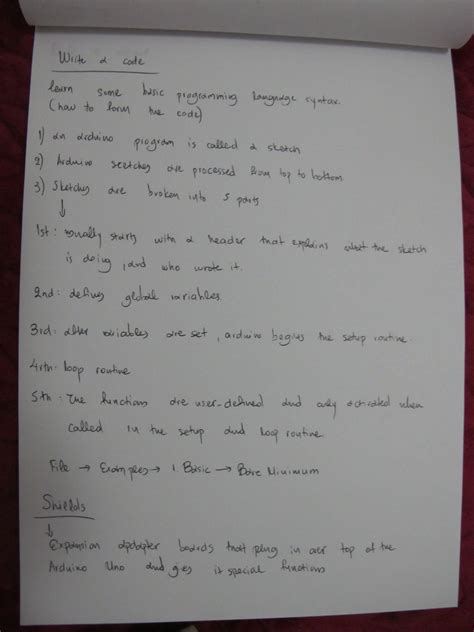 Write a code
learn some basic programming language syntax
(how to form the code)
1) an arduino program is called a sketch
2) Arduino scetches are processed from top to bottom
3) Sketches are broken into 5 parts
↓
1st: usually starts with a header that explains what the sketch
is doing, and who wrote it.
2nd: defines global variables.
3rd: after variables are set, arduino begins the setup routine.
4rth: loop routine
5th: The functions are user-defined and only activated when
called in the setup and loop routine
File → Examples → 1. Basic → Bare Minimum
Shields
↓
Expansion adapter boards that plug in over top of the
Arduino Uno and gives it special functions